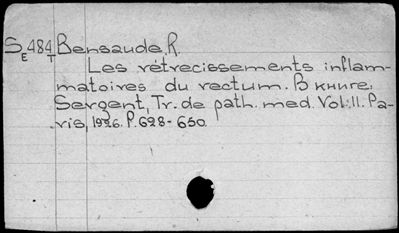 S E 484 T Bensaude, R.
Les rétrecissements inflam-
matoires du rectum. В книге:
Sergent, Tr. de path. med. Vol: II. Pa-
ris, 1926. P. 628-650.